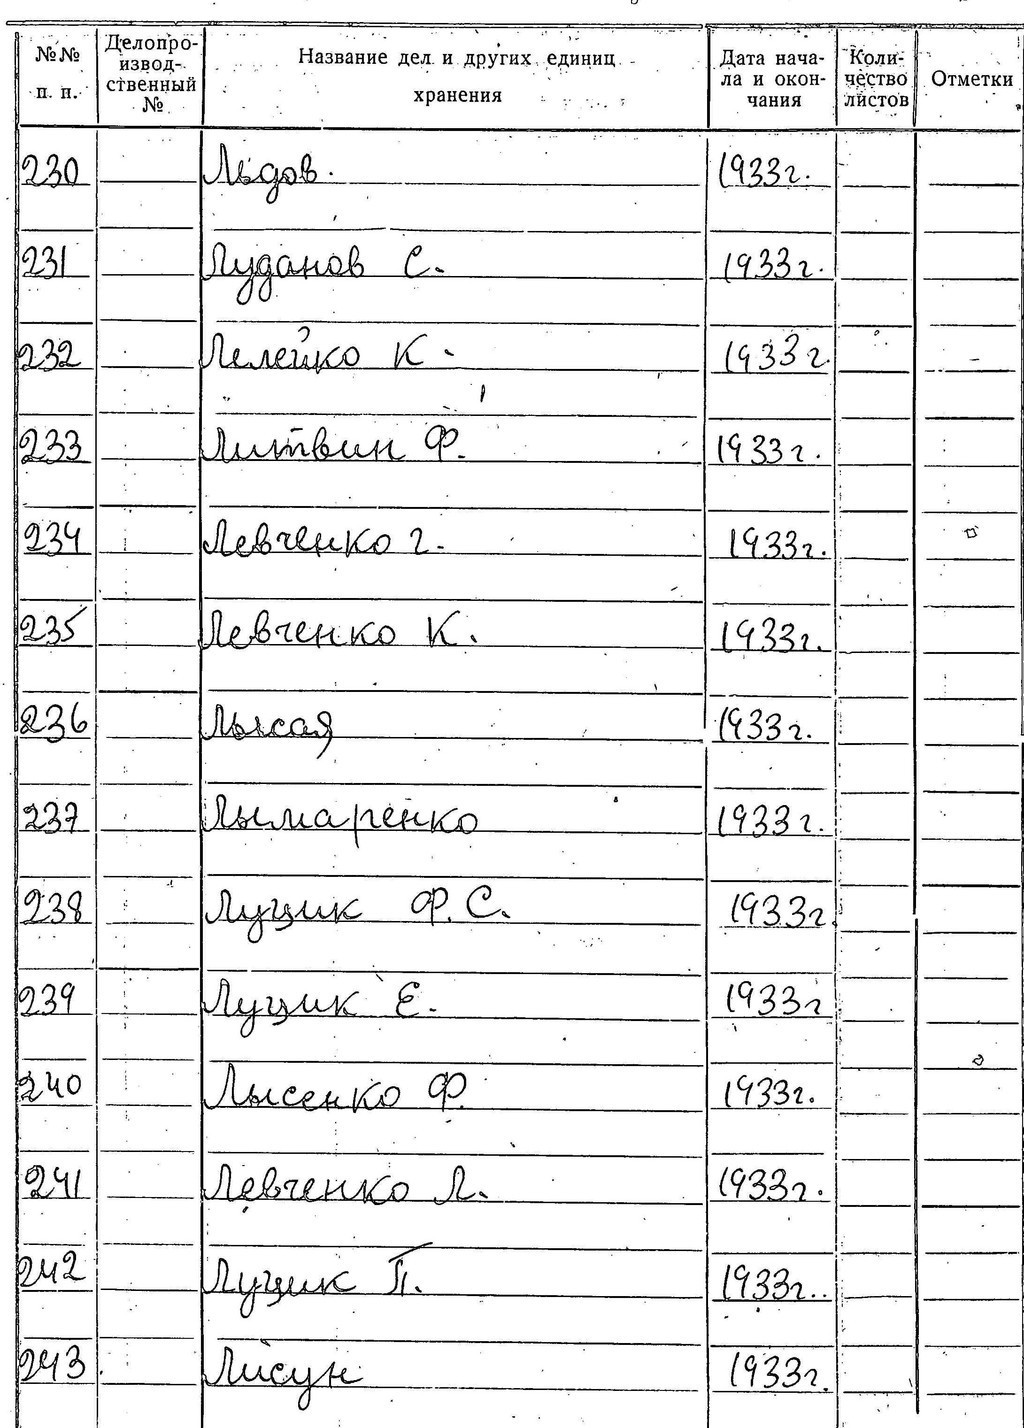 №№ п. п. Делопро-извод-ственный № Название дел и других единиц хранения Дата нача-ла и окон-чания Коли-чество листов Отметки
230 Льдов. 1933г.
231 Луданов С. 1933г.
232 Лелейко К. 1933г
233 Литвин Ф. 1933г.
234 Левченко Г. 1933г.
235 Левченко К. 1933г.
236 Лысая 1933г.
237 Лымаренко 1933г.
238 Луцик Ф.С. 1933г
239 Луцик Е. 1933г
240 Лысенко Ф. 1933г.
241 Левченко Л. 1933г.
242 Луцик П. 1933г.
243 Лисун 1933г.